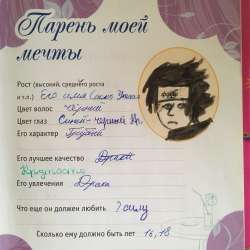 Парень моей
мечты
Рост (высокий, среднего роста
и т.п.) Его имя Саске Учиха
Цвет волос чёрный
Цвет глаз Синий-чёрный
Его характер Грубый
Его лучшее качество
Его увлечения Драка
Что еще он должен любить? силу
Сколько ему должно быть лет 16,18